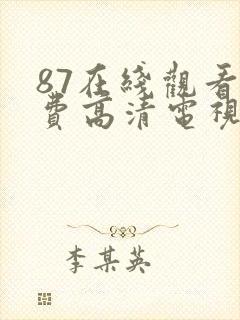 87在綫觀看
費高清電視
李某英